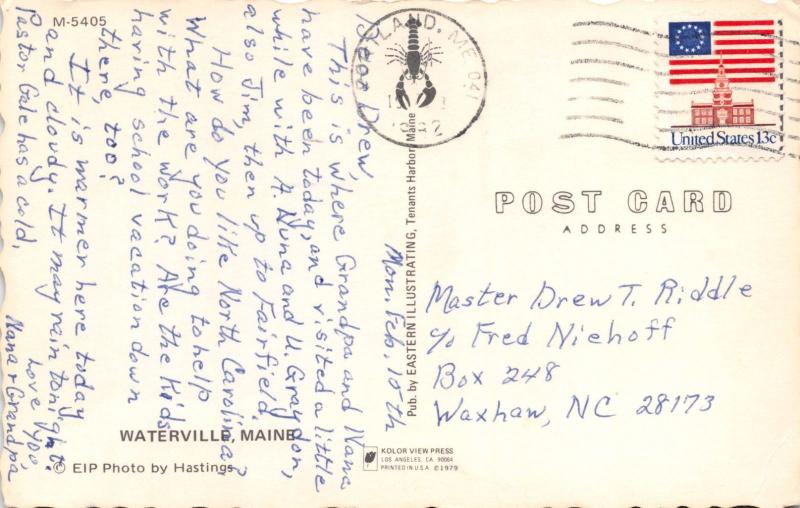 M-5405
Mon. Feb. 15th
Dear Drew,
This is where Grandpa and Nana
have been today, and visited a little
while with A. Nuna and U. Graydon,
also Jim, then up to Fairfield.
How do you like North Carolina?
What are you doing to help
with the work? Are the kids
having school vacation down
there, too?
It is warmer here today
and cloudy. It may rain tonight.
Pastor Gale has a cold.
Love you,
Nana & Grandpa
WATERVILLE, MAINE
© EIP Photo by Hastings
Pub. by EASTERN ILLUSTRATING, Tenants Harbor, Maine
KOLOR VIEW PRESS
LOS ANGELES, CA. 90064
PRINTED IN U.S.A. ©1979
PORTLAND, ME 041
United States 13c
POST CARD
ADDRESS
Master Drew T. Riddle
c/o Fred Niehoff
Box 248
Waxhaw, NC 28173